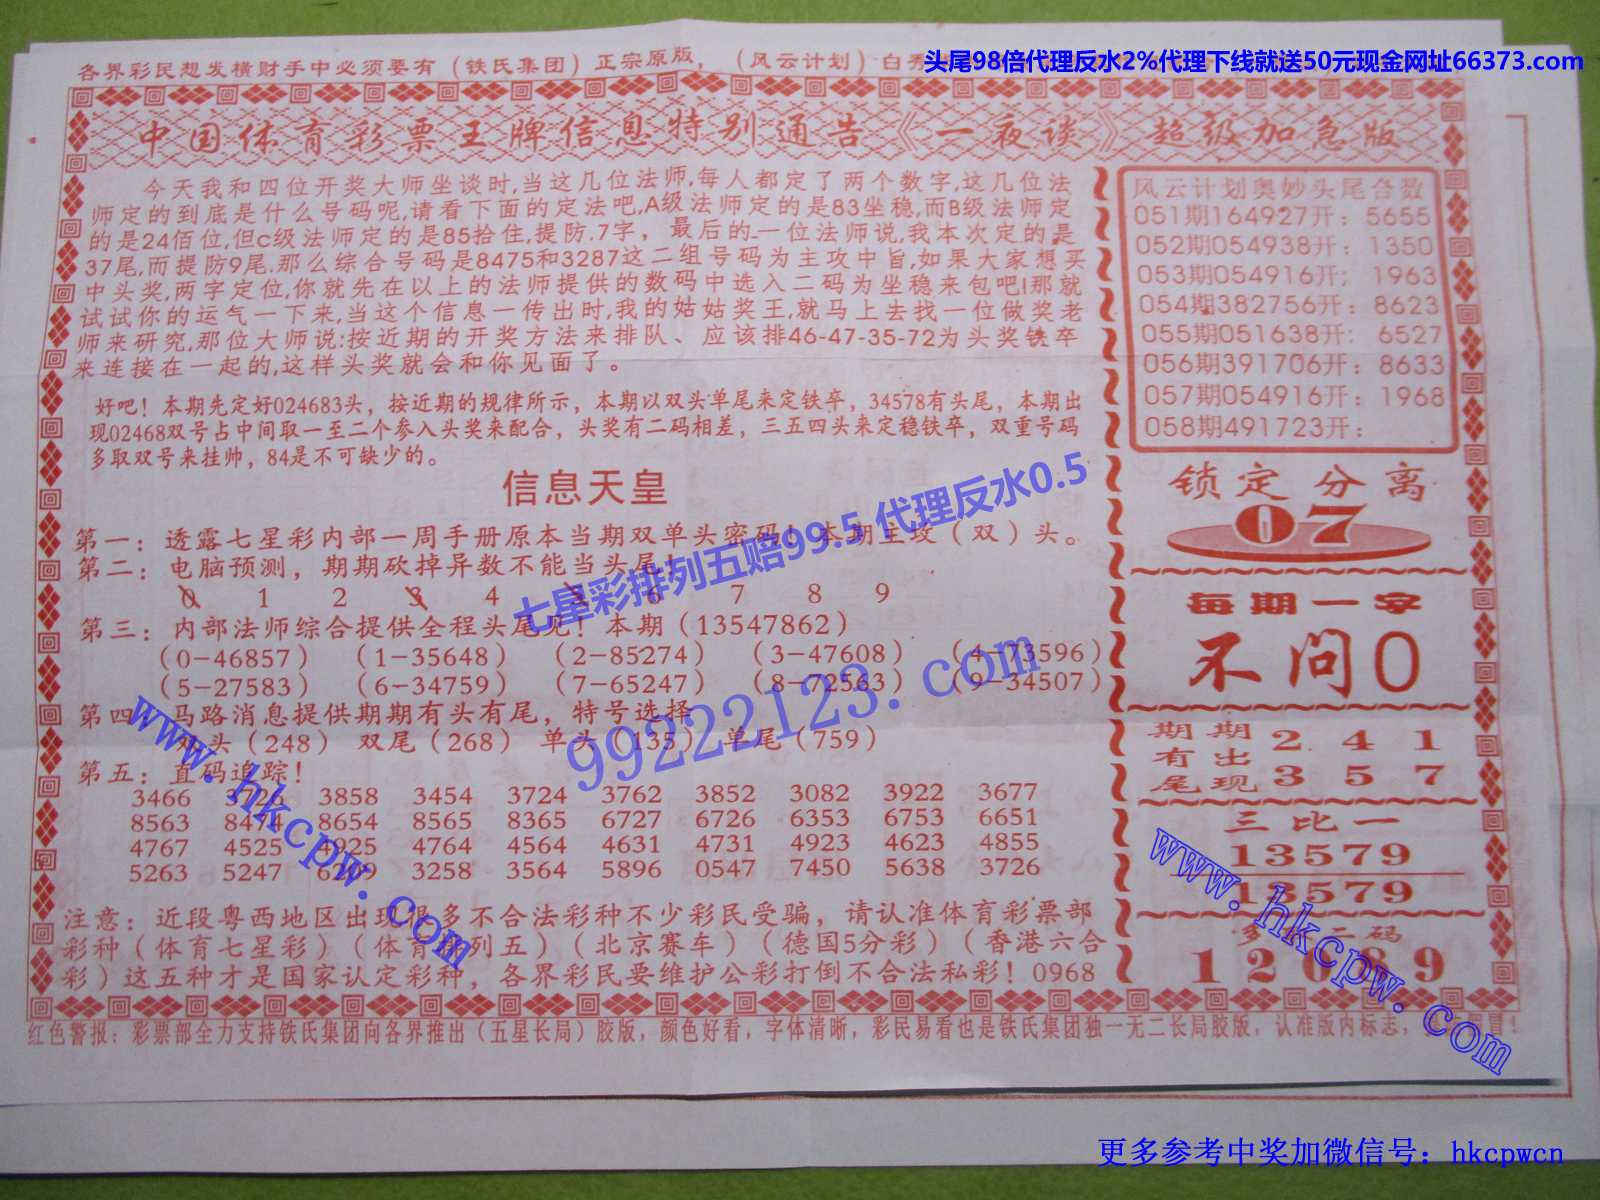 各界彩民想发横财手中必须要有（铁氏集团）正宗原版，（风云计划）白
头尾98倍代理反水2%代理下线就送50元现金网址66373.com
中国体育彩票王牌信息特别通告《一夜谈》超级加急版
今天我和四位开奖大师坐谈时,当这几位法师,每人都定了两个数字,这几位法
师定的到底是什么号码呢,请看下面的定法吧,A级法师定的是83坐稳,而B级法师定
的是24佰位,但c级法师定的是85拾住,提防.7字，最后的一位法师说,我本次定的是
37尾,而提防9尾.那么综合号码是8475和3287这二组号码为主攻中旨,如果大家想买
中头奖,两字定位,你就先在以上的法师提供的数码中选入二码为坐稳来包吧!那就
试试你的运气一下来,当这个信息一传出时,我的姑姑奖王,就马上去找一位做奖老
师来研究,那位大师说:按近期的开奖方法来排队、应该排46-47-35-72为头奖铁卒
来连接在一起的,这样头奖就会和你见面了。
好吧！本期先定好024683头，按近期的规律所示，本期以双头单尾来定铁卒，34578有头尾，本期出
现02468双号占中间取一至二个参入头奖来配合，头奖有二码相差，三五四头来定稳铁卒，双重号码
多取双号来挂帅，84是不可缺少的。
信息天皇
第一：透露七星彩内部一周手册原本当期双单头密码！本期主攻（双）头。
第二：电脑预测，期期砍掉异数不能当头尾！
0 1 2 3 4 5 6 7 8 9
第三：内部法师综合提供全程头尾见！本期（13547862）
（0-46857）（1-35648）（2-85274）（3-47608）（4-73596）
（5-27583）（6-34759）（7-65247）（8-72563）（9-34507）
第四：马路消息提供期期有头有尾，特号选择
双头（248） 双尾（268） 单头（135） 单尾（759）
第五：直码追踪！
3466 3858 3454 3724 3762 3852 3082 3922 3677
8563 8474 8654 8565 8365 6727 6726 6353 6753 6651
4767 4525 4925 4764 4564 4631 4731 4923 4623 4855
5263 5247 3258 3564 5896 0547 7450 5638 3726
注意：近段粤西地区出现很多不合法彩种不少彩民受骗，请认准体育彩票部
彩种（体育七星彩）（体育排列五）（北京赛车）（德国5分彩）（香港六合
彩）这五种才是国家认定彩种，各界彩民要维护公彩打倒不合法私彩！0968
风云计划奥妙头尾合数
051期164927开：5655
052期054938开：1350
053期054916开；1963
054期382756开：8623
055期051638开：6527
056期391706开：8633
057期054916开：1968
058期491723开：
锁定分离
07
每期一字
不问0
期期 2 4 1
有出
尾现 3 5 7
三比一
13579
13579
二码
红色警报：彩票部全力支持铁氏集团向各界推出（五星长局）胶版，颜色好看，字体清晰，彩民易看也是铁氏集团独一无二长局胶版，认准版内标志，
七星彩排列五赔99.5 代理反水0.5
99222123.com
www.hkcpw.com
www.hkcpw.com
更多参考中奖加微信号：hkcpwcn